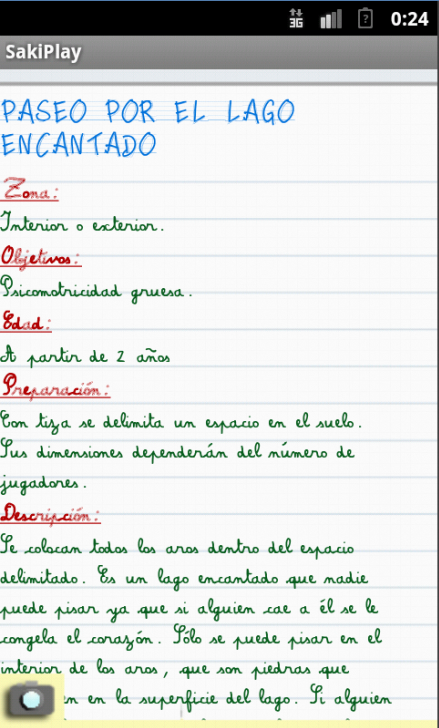 0:24
SakiPlay
PASEO POR EL LAGO
ENCANTADO
Zona:
Interior o exterior.
Objetivos:
Psicomotricidad gruesa.
Edad:
A partir de 2 años
Preparación:
Con tiza se delimita un espacio en el suelo.
Sus dimensiones dependerán del número de
jugadores.
Descripción:
Se colocan todos los aros dentro del espacio
delimitado. Es un lago encantado que nadie
puede pisar ya que si alguien cae a él se le
congela el corazón. Sólo se puede pisar en el
interior de los aros, que son piedras que
en en la superficie del lago. Si alguien